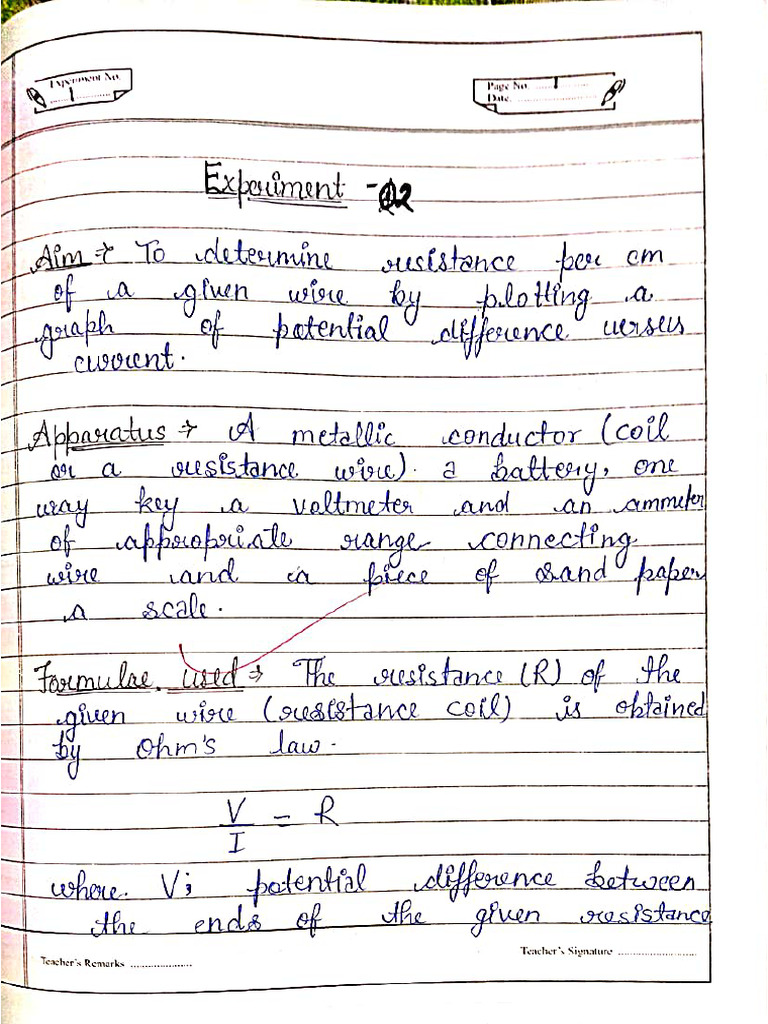 Experiment No.
1
Page No. 1
Date.
Experiment - 02
Aim → To determine resistance per cm
of a given wire by plotting a
graph of potential difference versus
current.
Apparatus → A metallic conductor (coil
or a resistance wire). a battery, one
way key a voltmeter and an ammeter
of appropriate range connecting
wire and a piece of sand paper
a scale.
Formulae used → The resistance (R) of the
given wire (resistance coil) is obtained
by Ohm's law.
V
— = R
I
where. V; potential difference between
the ends of the given resistance
Teacher's Remarks ....................
Teacher's Signature ....................